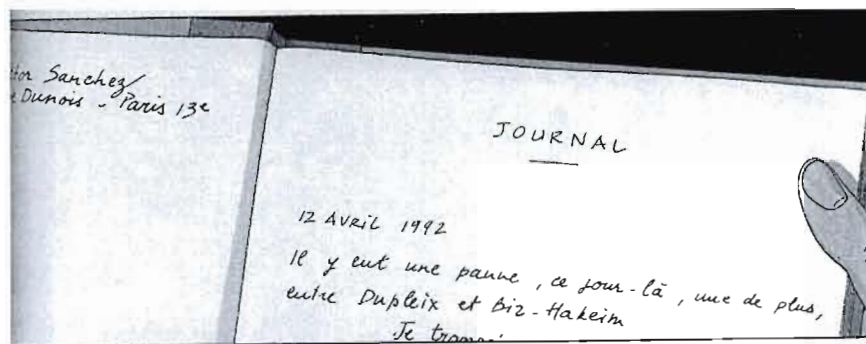 Sanchez
Dunois - Paris 13e
JOURNAL
12 AVRIL 1992
Il y eut une panne, ce jour-là, une de plus,
entre Dupleix et Bir-Hakeim
Je